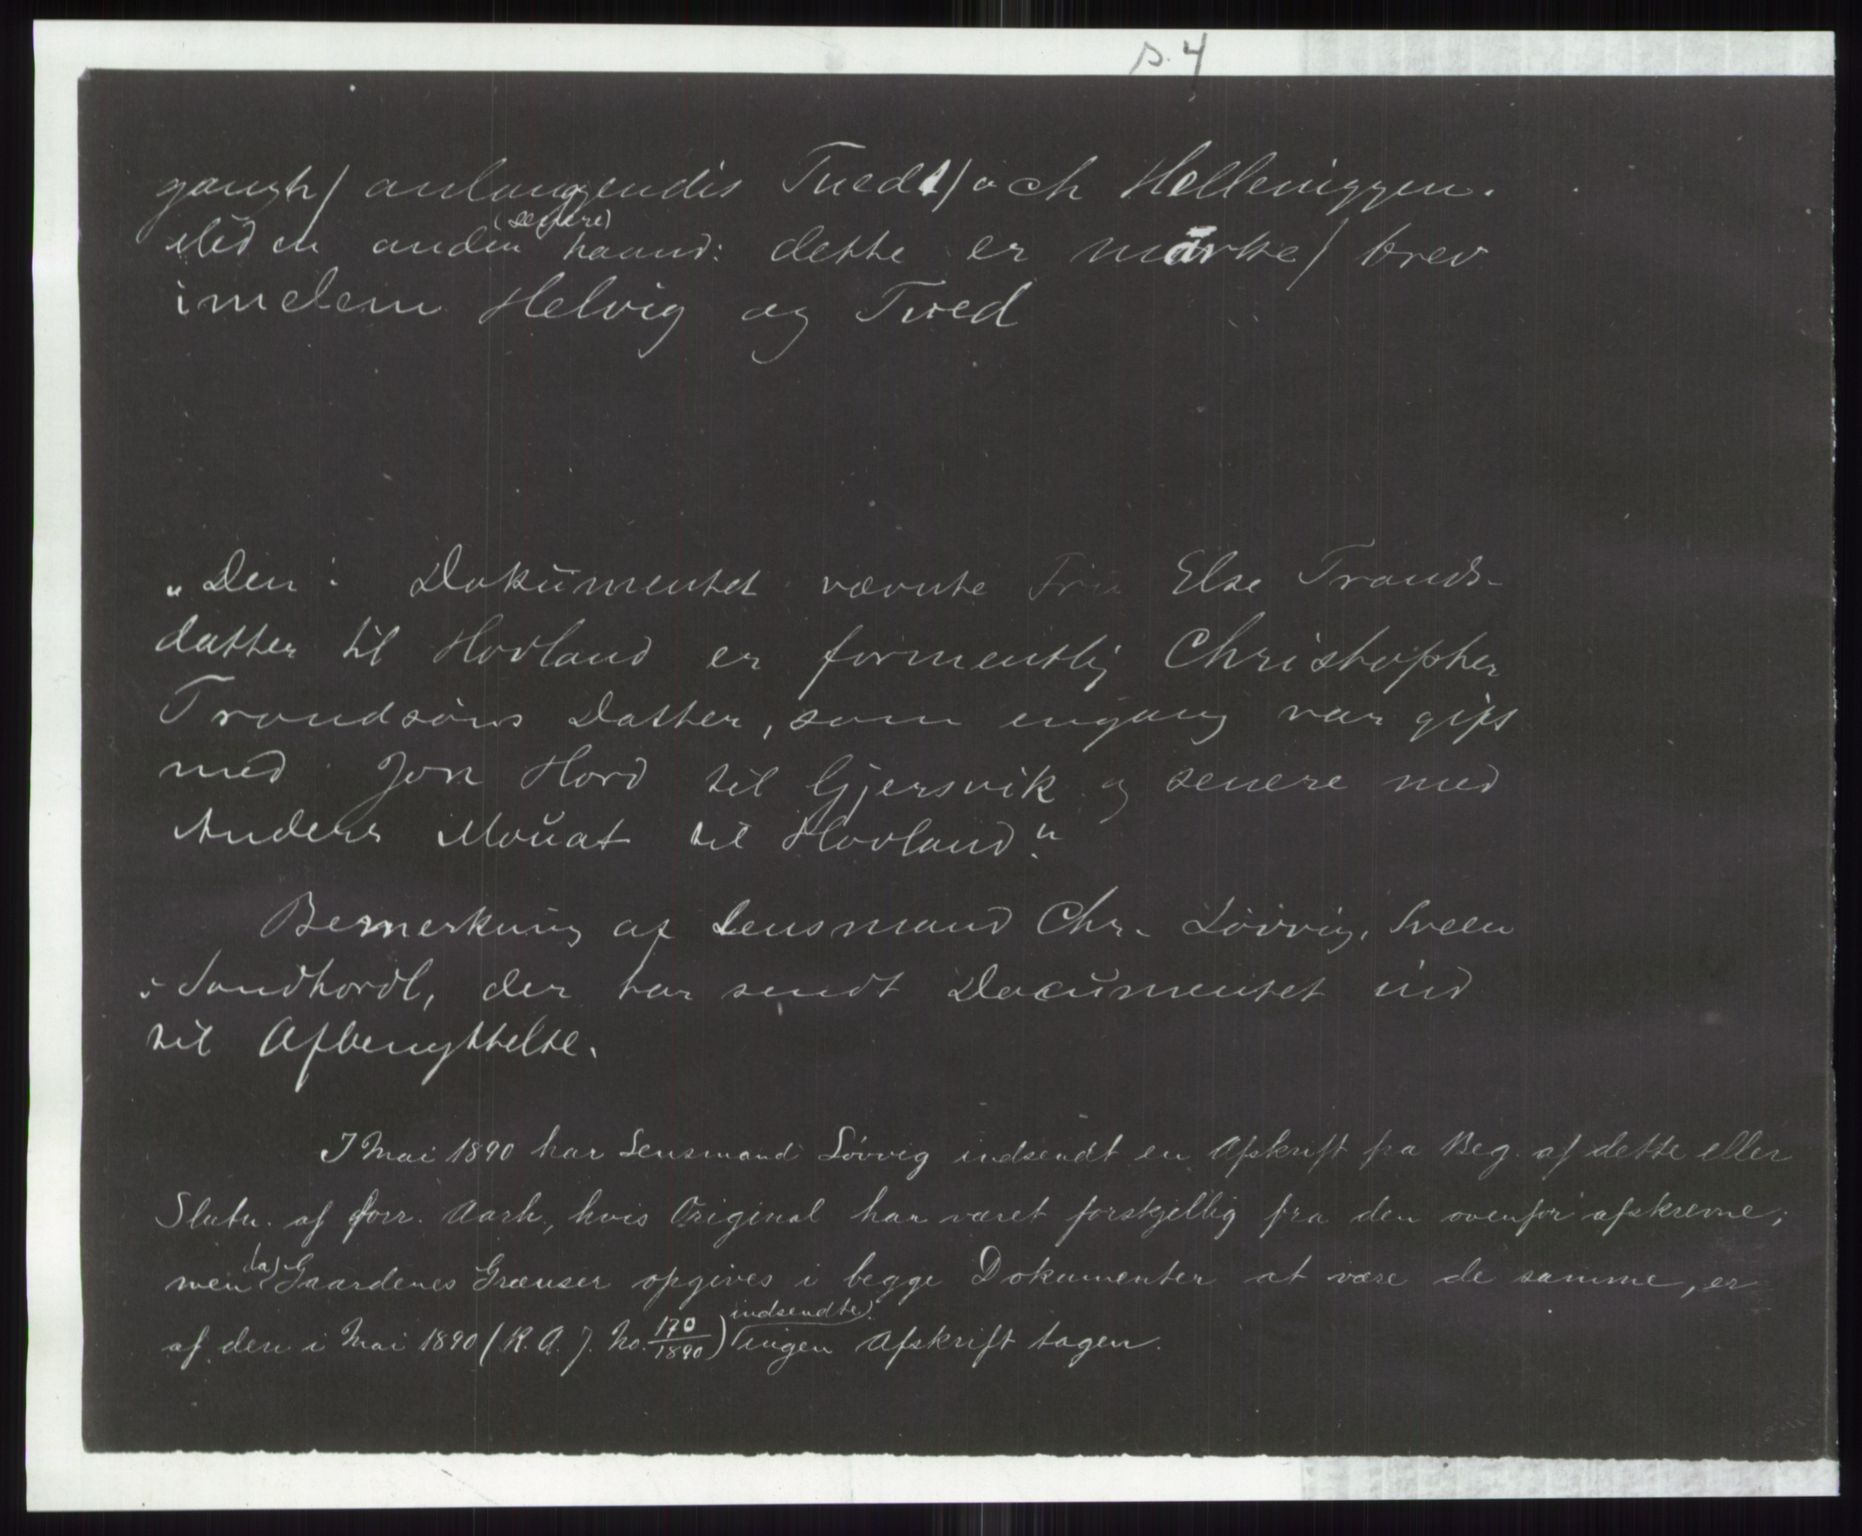 p. 4
gangh/ anlanggendis Tuedt/ och Helleniggen.
Med en anden (senere) haand: dette er märke/ brev
imelem Helvig og Tved
„Den i Dokumentet nævnte Fru Else Tronds-
datter til Hovland er formentlig Christopher
Trondsöns Datter, som engang var gift
med Jon Hord til Gjersvik og senere med
Anders Mouat til Hovland."
Bemerkning af Lensmand Chr. Lövvig, Sveen
i Söndhordl, der har sendt Documentet ind
til Afbenyttelse.
I Mai 1890 har Lensmand Lövvig indsendt en Afskrift fra Beg. af dette eller
Slutn. af forr. Aarh., hvis Original har været forskjellig fra den ovenfor afskrevne;
men (da) Gaardenes Grænser opgives i begge Dokumenter at være de samme, er
af den i Mai 1890 (R. A. J. No. 170/1890) indsendte ingen Afskrift tagen.